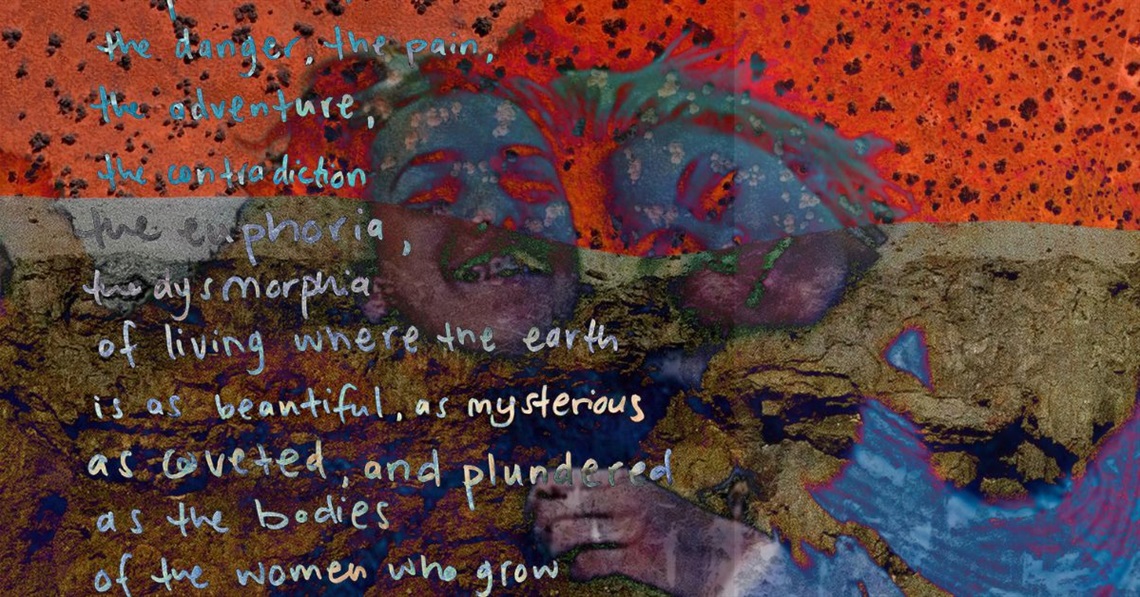 the danger, the pain,
the adventure,
the contradiction
the euphoria,
the dysmorphia
of living where the earth
is as beautiful, as mysterious
as coveted, and plundered
as the bodies
of the women who grow